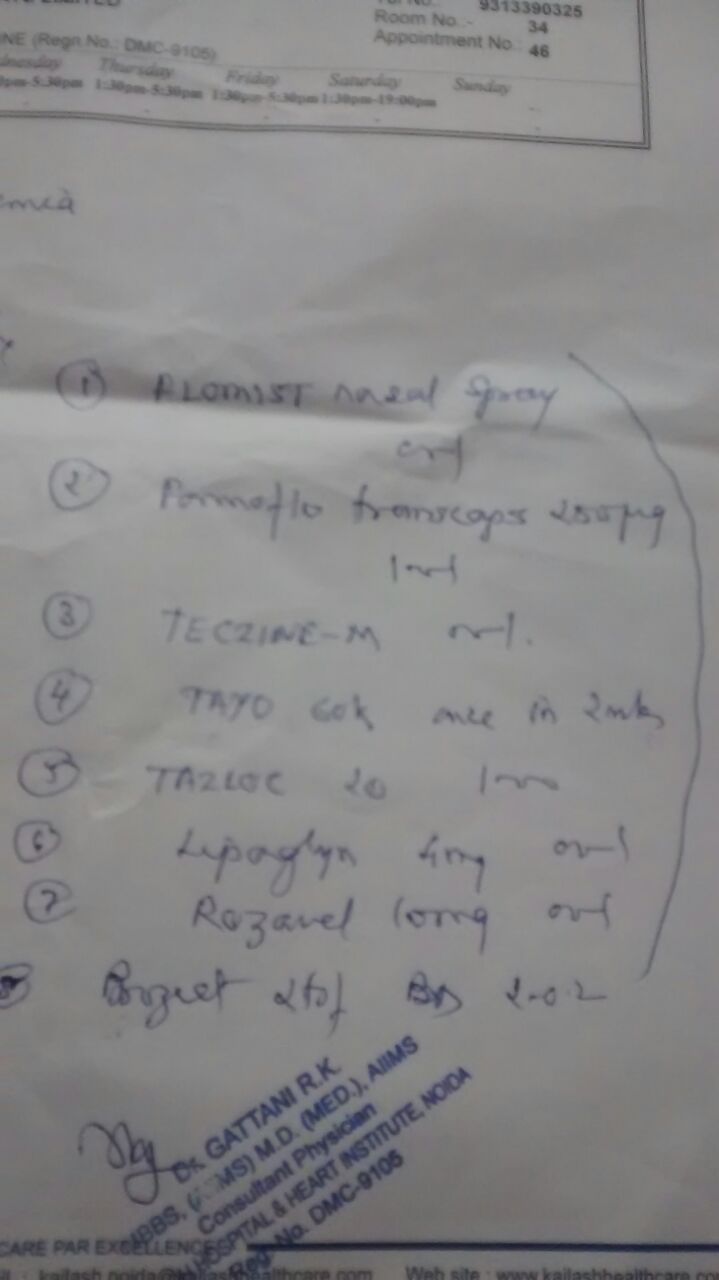 LIMITED
9313390325
Room No.:- 34
Appointment No.: 46
INE (Regn.No.: DMC-9105)
dnesday Thursday Friday Saturday Sunday
0pm-5:30pm 1:30pm-5:30pm 1:30pm-5:30pm 1:30pm-19:00pm
emia
① FLOMIST nasal Spray
②
transcaps 250µg
③ TECZINE-M
④ TAYO 60k once in 2wks
⑤ TAZLOC 20
⑥ Lipaglyn 4mg
⑦ Rozavel 10mg
BD 2-0-2
Dr. GATTANI R.K
MBBS, (AIIMS) M.D. (MED.), AIIMS
Consultant Physician
HOSPITAL & HEART INSTITUTE, NOIDA
Reg. No. DMC-9105
CARE PAR EXCELLENCE
kailash.noida@ healthcare.com Web site : www.kailashhealthcare.com